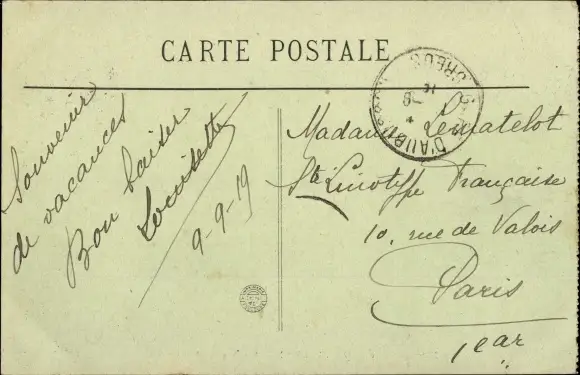 CARTE POSTALE
Souvenir
de vacances
Bon baiser
Louisette
9-9-19
D'AUBU
CREUSE
Madame Lematelot
Sté Linotype Française
10, rue de Valois
Paris
1er ar